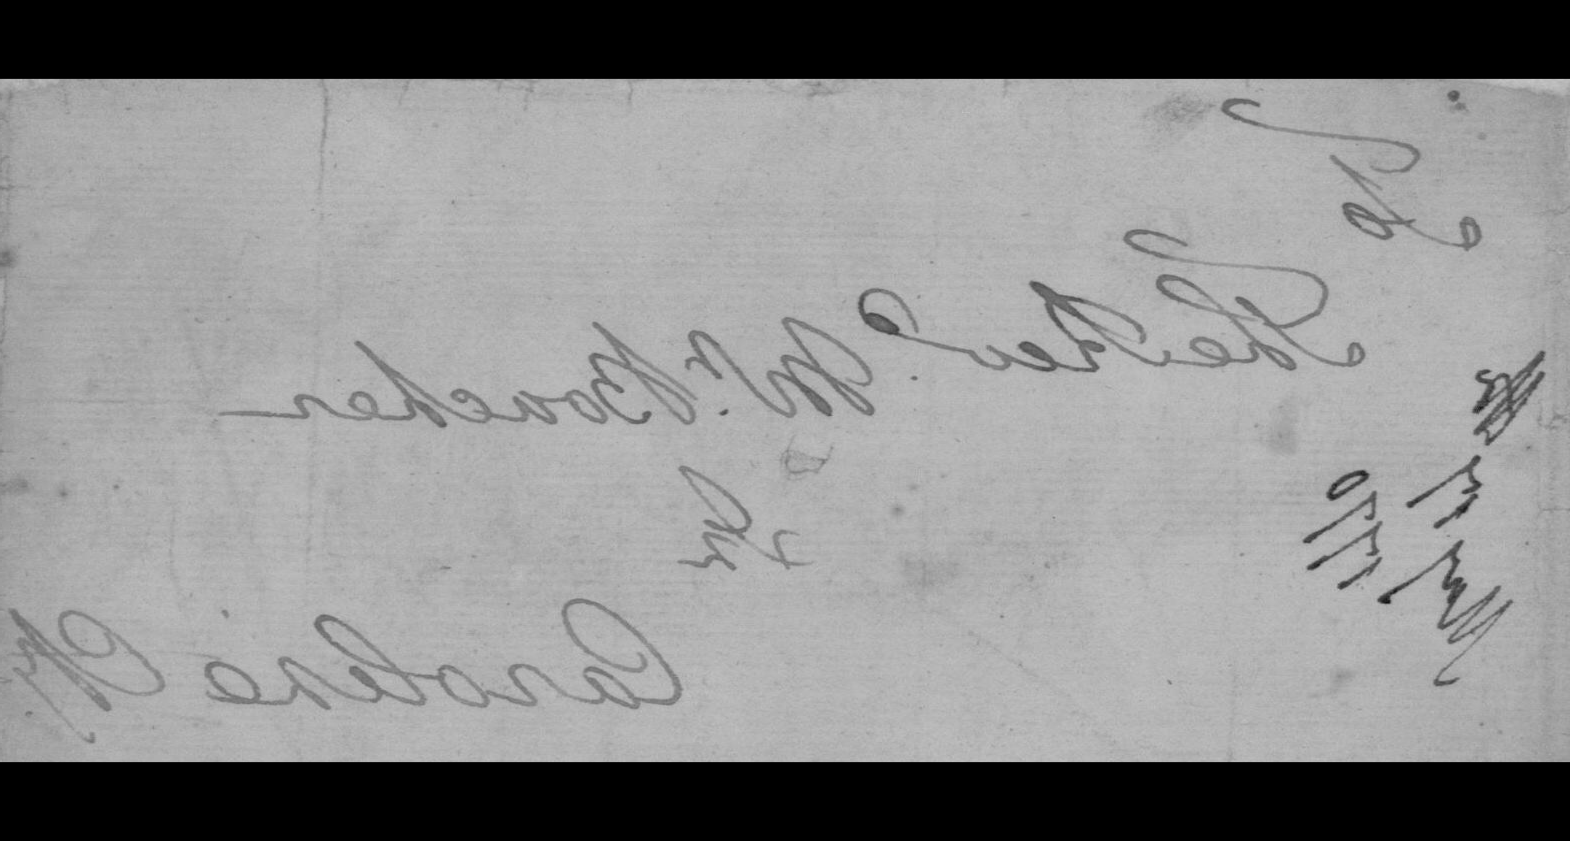 To
The Revd. Mr. Boucher
In
Caroline Cty
May 15
1770